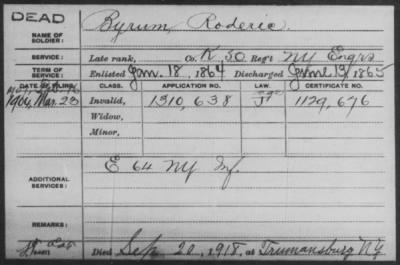 DEAD
NAME OF SOLDIER: Byrum, Roderic
SERVICE: Late rank, Co. K, 50 Reg't NY Engrs
TERM OF SERVICE: Enlisted Jan. 18, 1864 Discharged June 13, 1865
DATE OF FILING. CLASS. APPLICATION NO. LAW. CERTIFICATE NO.
1904, Mar. 23 Invalid, 1310,638 1129,676
Widow,
Minor,
ADDITIONAL SERVICES: E 64 NY Inf.
REMARKS:
Died Sep 20, 1918, at Trumansburg NY